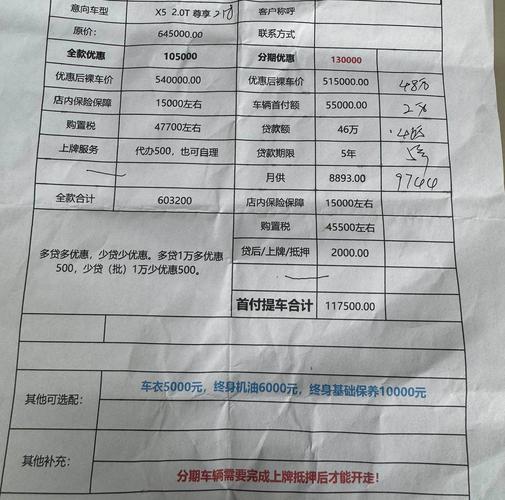 意向车型 X5 2.0T 尊享 客户称呼
原价: 645000.00 联系方式
全款优惠 105000 分期优惠 130000
优惠后裸车价 540000.00 优惠后裸车价 515000.00 48万
店内保险保障 15000左右 车辆首付额 55000.00 2万
购置税 47700左右 贷款额 46万
上牌服务 代办500,也可自理 贷款期限 5年 5年
月供 8893.00 9744
全款合计 603200 店内保险保障 15000左右
购置税 45500左右
多贷多优惠,少贷少优惠。多贷1万多优惠 贷后/上牌/抵押 2000.00
500,少贷(批)1万少优惠500。
首付提车合计 117500.00
其他可选配: 车衣5000元,终身机油6000元,终身基础保养10000元
其他补充:
分期车辆需要完成上牌抵押后才能开走!